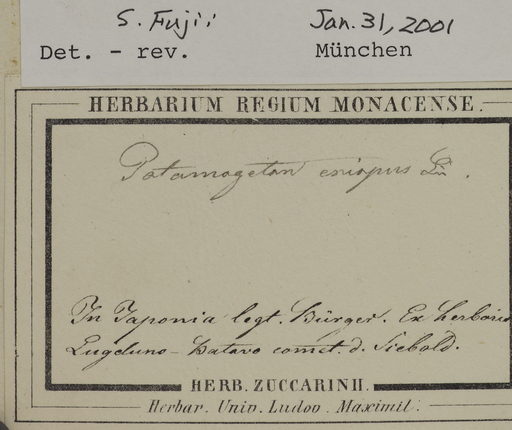 S. Fujii
Jan. 31, 2001
Det. - rev.
München
HERBARIUM REGIUM MONACENSE.
Potamogeton crispus Lin.
In Japonia legt. Bürger. Ex herbario
Lugduno-batavo comct. d. Siebold.
HERB. ZUCCARINII.
Herbar. Univ. Ludov. Maximil.